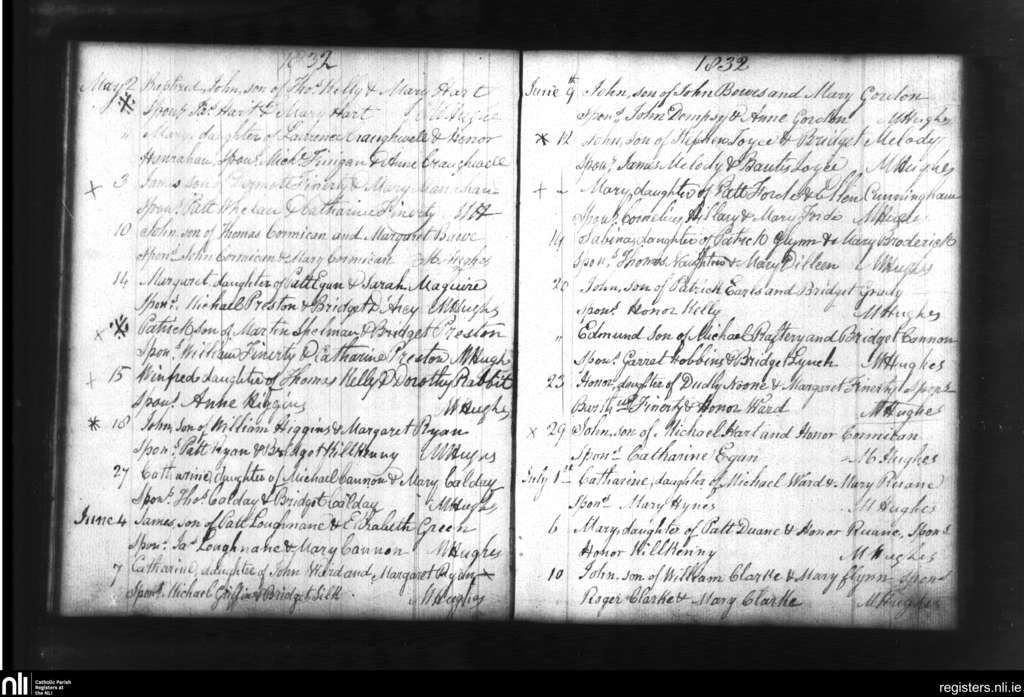 1832
May 2 Baptized, John, son of Thos Kelly & Mary Hart
Sponrs Jas Hart & Mary Hart
" Mary, daughter of Laurence Craughwell & Honor
Hanrahan, Sponrs Michl Finigan & Anne Craughwell
+ 3 James son of Finerty & Mary
Sponrs Patt Whelan & Catharine Finerty MH
10 John son of Thomas Cormican and Margaret
Sponrs John Cormican & Mary Cormican M Hughes
14 Margaret daughter of Patt Egan & Sarah Maguire
Sponrs Michael Preston & Bridget MHughes
Patrick son of Martin Spelman & Bridget Preston
Sponrs William Finerty & Catharine Preston MHughs
+ 15 Winifred daughter of Thomas Kelly & Dorothy Rabbit
Sponrs Anne Higgins MHughs
* 18 John, son of William Higgins & Margaret Ryan
Sponrs Patt Ryan & Bridget Killkenny MHughs
27 Catharine, daughter of Michael Cannon & Mary Calday
Sponrs Thos Calday & Bridget Calday MHughs
June 4 James, son of Patt Loughnane & Elizabeth Green
Sponrs Jas Loughnane & Mary Cannon MHughes
7 Catharine, daughter of John Ward and, Margaret Ryan
Sponrs Michael Griffin & Bridget Silk MHughes
1832
June 9th John, son of John Bowes and Mary Gordon
Sponrs John Dempsy & Anne Gordon MHughes
* 12 John, son of Stephen Joyce & Bridget Melody
Sponrs James Melody & Joyce MHughes
+ " Mary, daughter of Patt Forde & Ellen Cunningham
Sponrs Cornelius Hillary & Mary Forde MHughes
14 Sabina, daughter of Patrick Glynn & Mary Broderick
Sponrs Thomas Naughten & Mary Dilleen MHughs
20 John, son of Patrick Earls and Bridget Grady
Sponrs Honor Kelly MHughes
" Edmund, son of Michael Raftery and Bridget Cannon
Sponrs Garret Hobbins & Bridget Lynch MHughes
23 Honor, daughter of Dudly Noone & Margaret Finerty Sponrs
Barthw Finerty & Honor Ward MHughes
x 29 John, son of Michael Hart and Honor Cormican
Sponrs Catharine Egan M Hughes
July 1st Catharine, daughter of Michael Ward & Mary Ruane
Sponrs Mary Hynes M Hughes
6 Mary, daughter of Patt Duane & Honor Ruane, Sponrs
Honor Killkenny M Hughes
10 John, son of William Clarke & Mary Flynn Sponrs
Roger Clarke & Mary Clarke MHughes
nli
Catholic Parish
Registers at
the NLI
registers.nli.ie